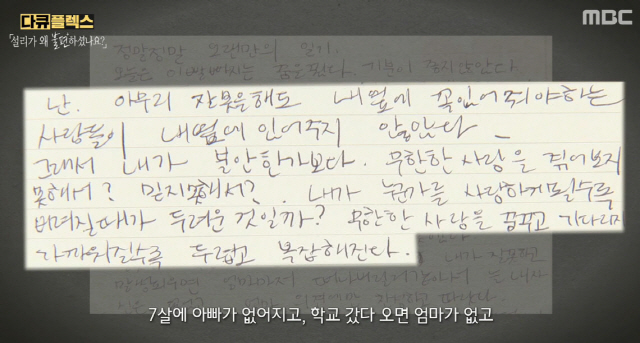 다큐플렉스
「설리가 왜 불편하셨나요?」
MBC
정말정말 오랜만의 일기.
오늘은 이빨빠지는 꿈을 꿨다. 기분이 좋지 않았다.
난. 아무리 잘못을해도 내옆에 꼭있어줘야하는
사람들이 내옆에 있어주지 않았다 _
그래서 내가 불안한가보다. 무한한 사랑을 겪어보지
못해서? 믿지못해서? . 내가 뭔가를 사랑하게될수록
버려질때가 두려운 것일까? 무한한 사랑을 꿈꾸고 기다리지
가까워질수록 두렵고 복잡해진다.
7살에 아빠가 없어지고, 학교 갔다 오면 엄마가 없고